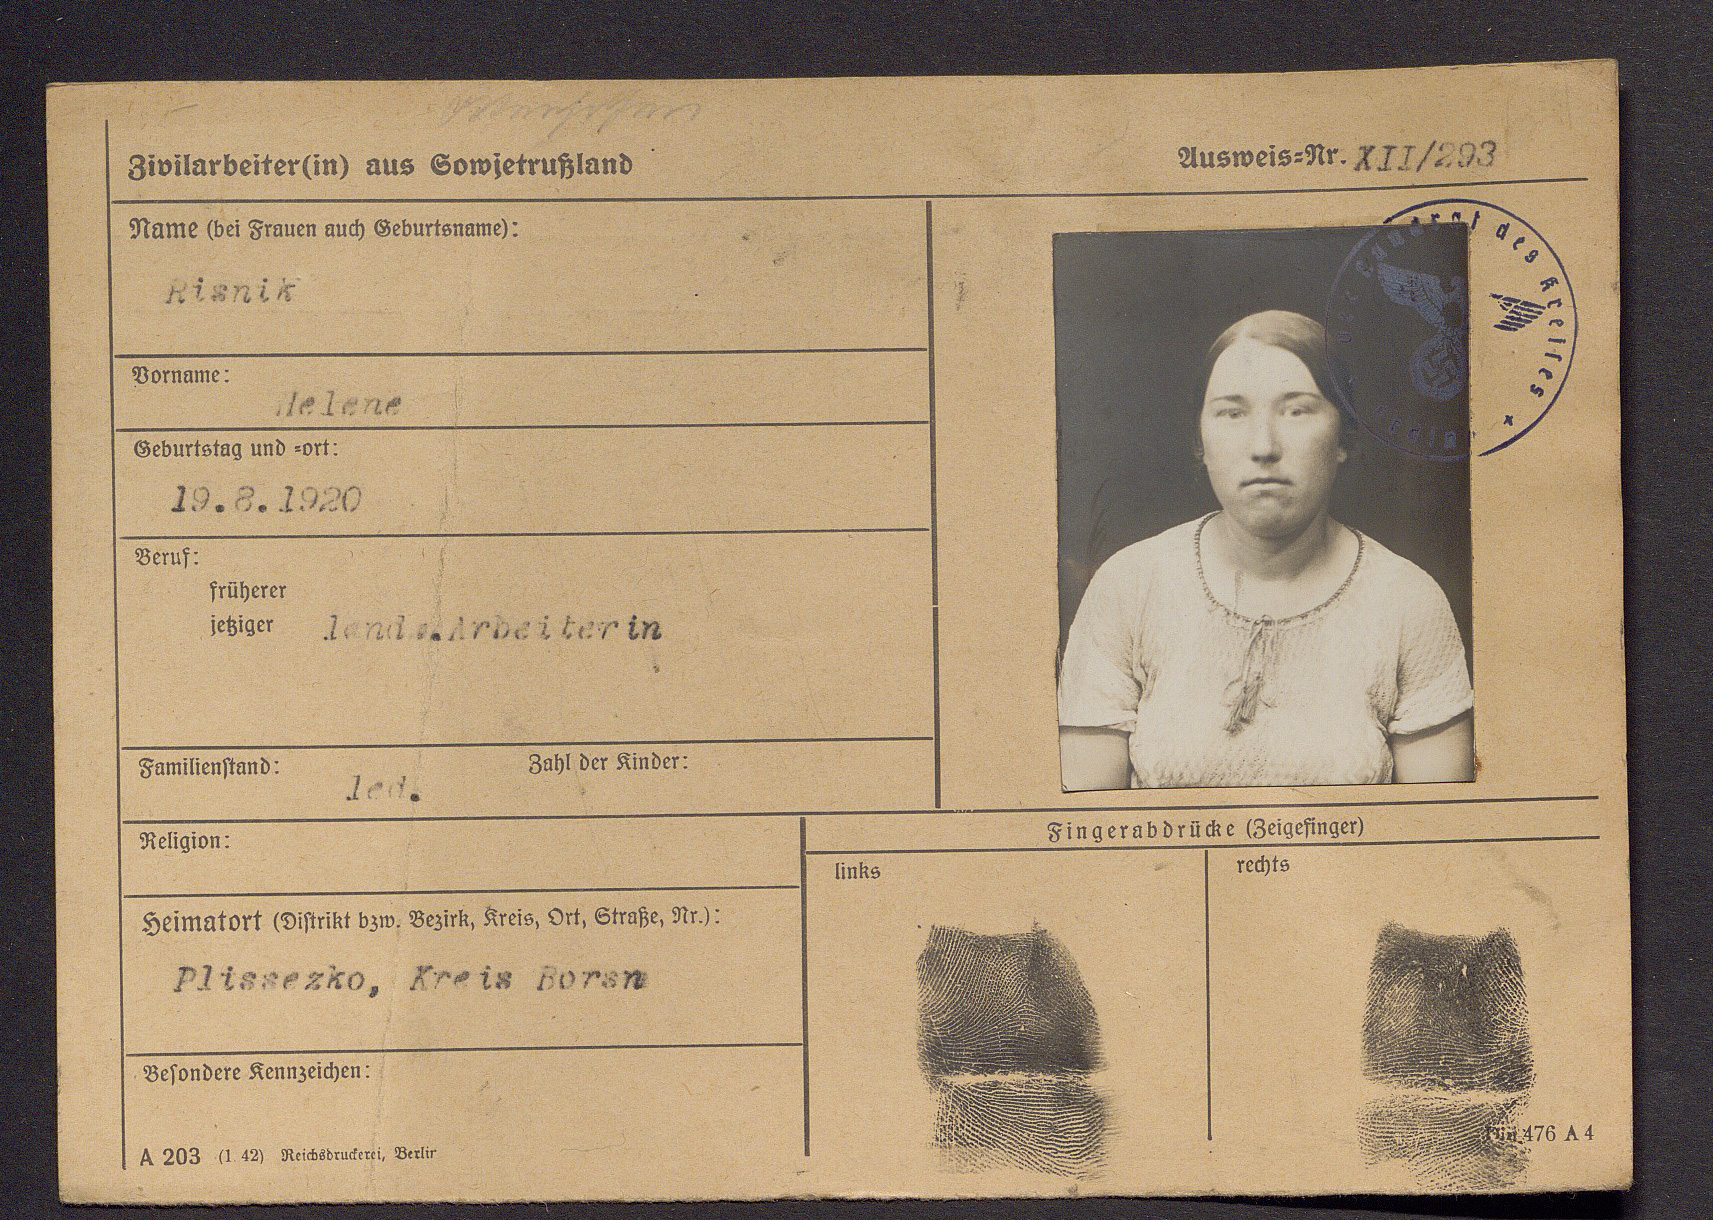 Zivilarbeiter(in) aus Sowjetrußland
Ausweis=Nr. XII/293
Name (bei Frauen auch Geburtsname):
Risnik
Vorname:
Helene
Geburtstag und =ort:
19.8.1920
Beruf:
früherer
jetziger landw.Arbeiterin
Familienstand: led. Zahl der Kinder:
Religion:
Heimatort (Distrikt bzw. Bezirk, Kreis, Ort, Straße, Nr.):
Plissezko, Kreis Borsn
Besondere Kennzeichen:
Fingerabdrücke (Zeigefinger)
links
rechts
des Kreises
A 203 (1. 42) Reichsdruckerei, Berlin
476 A 4